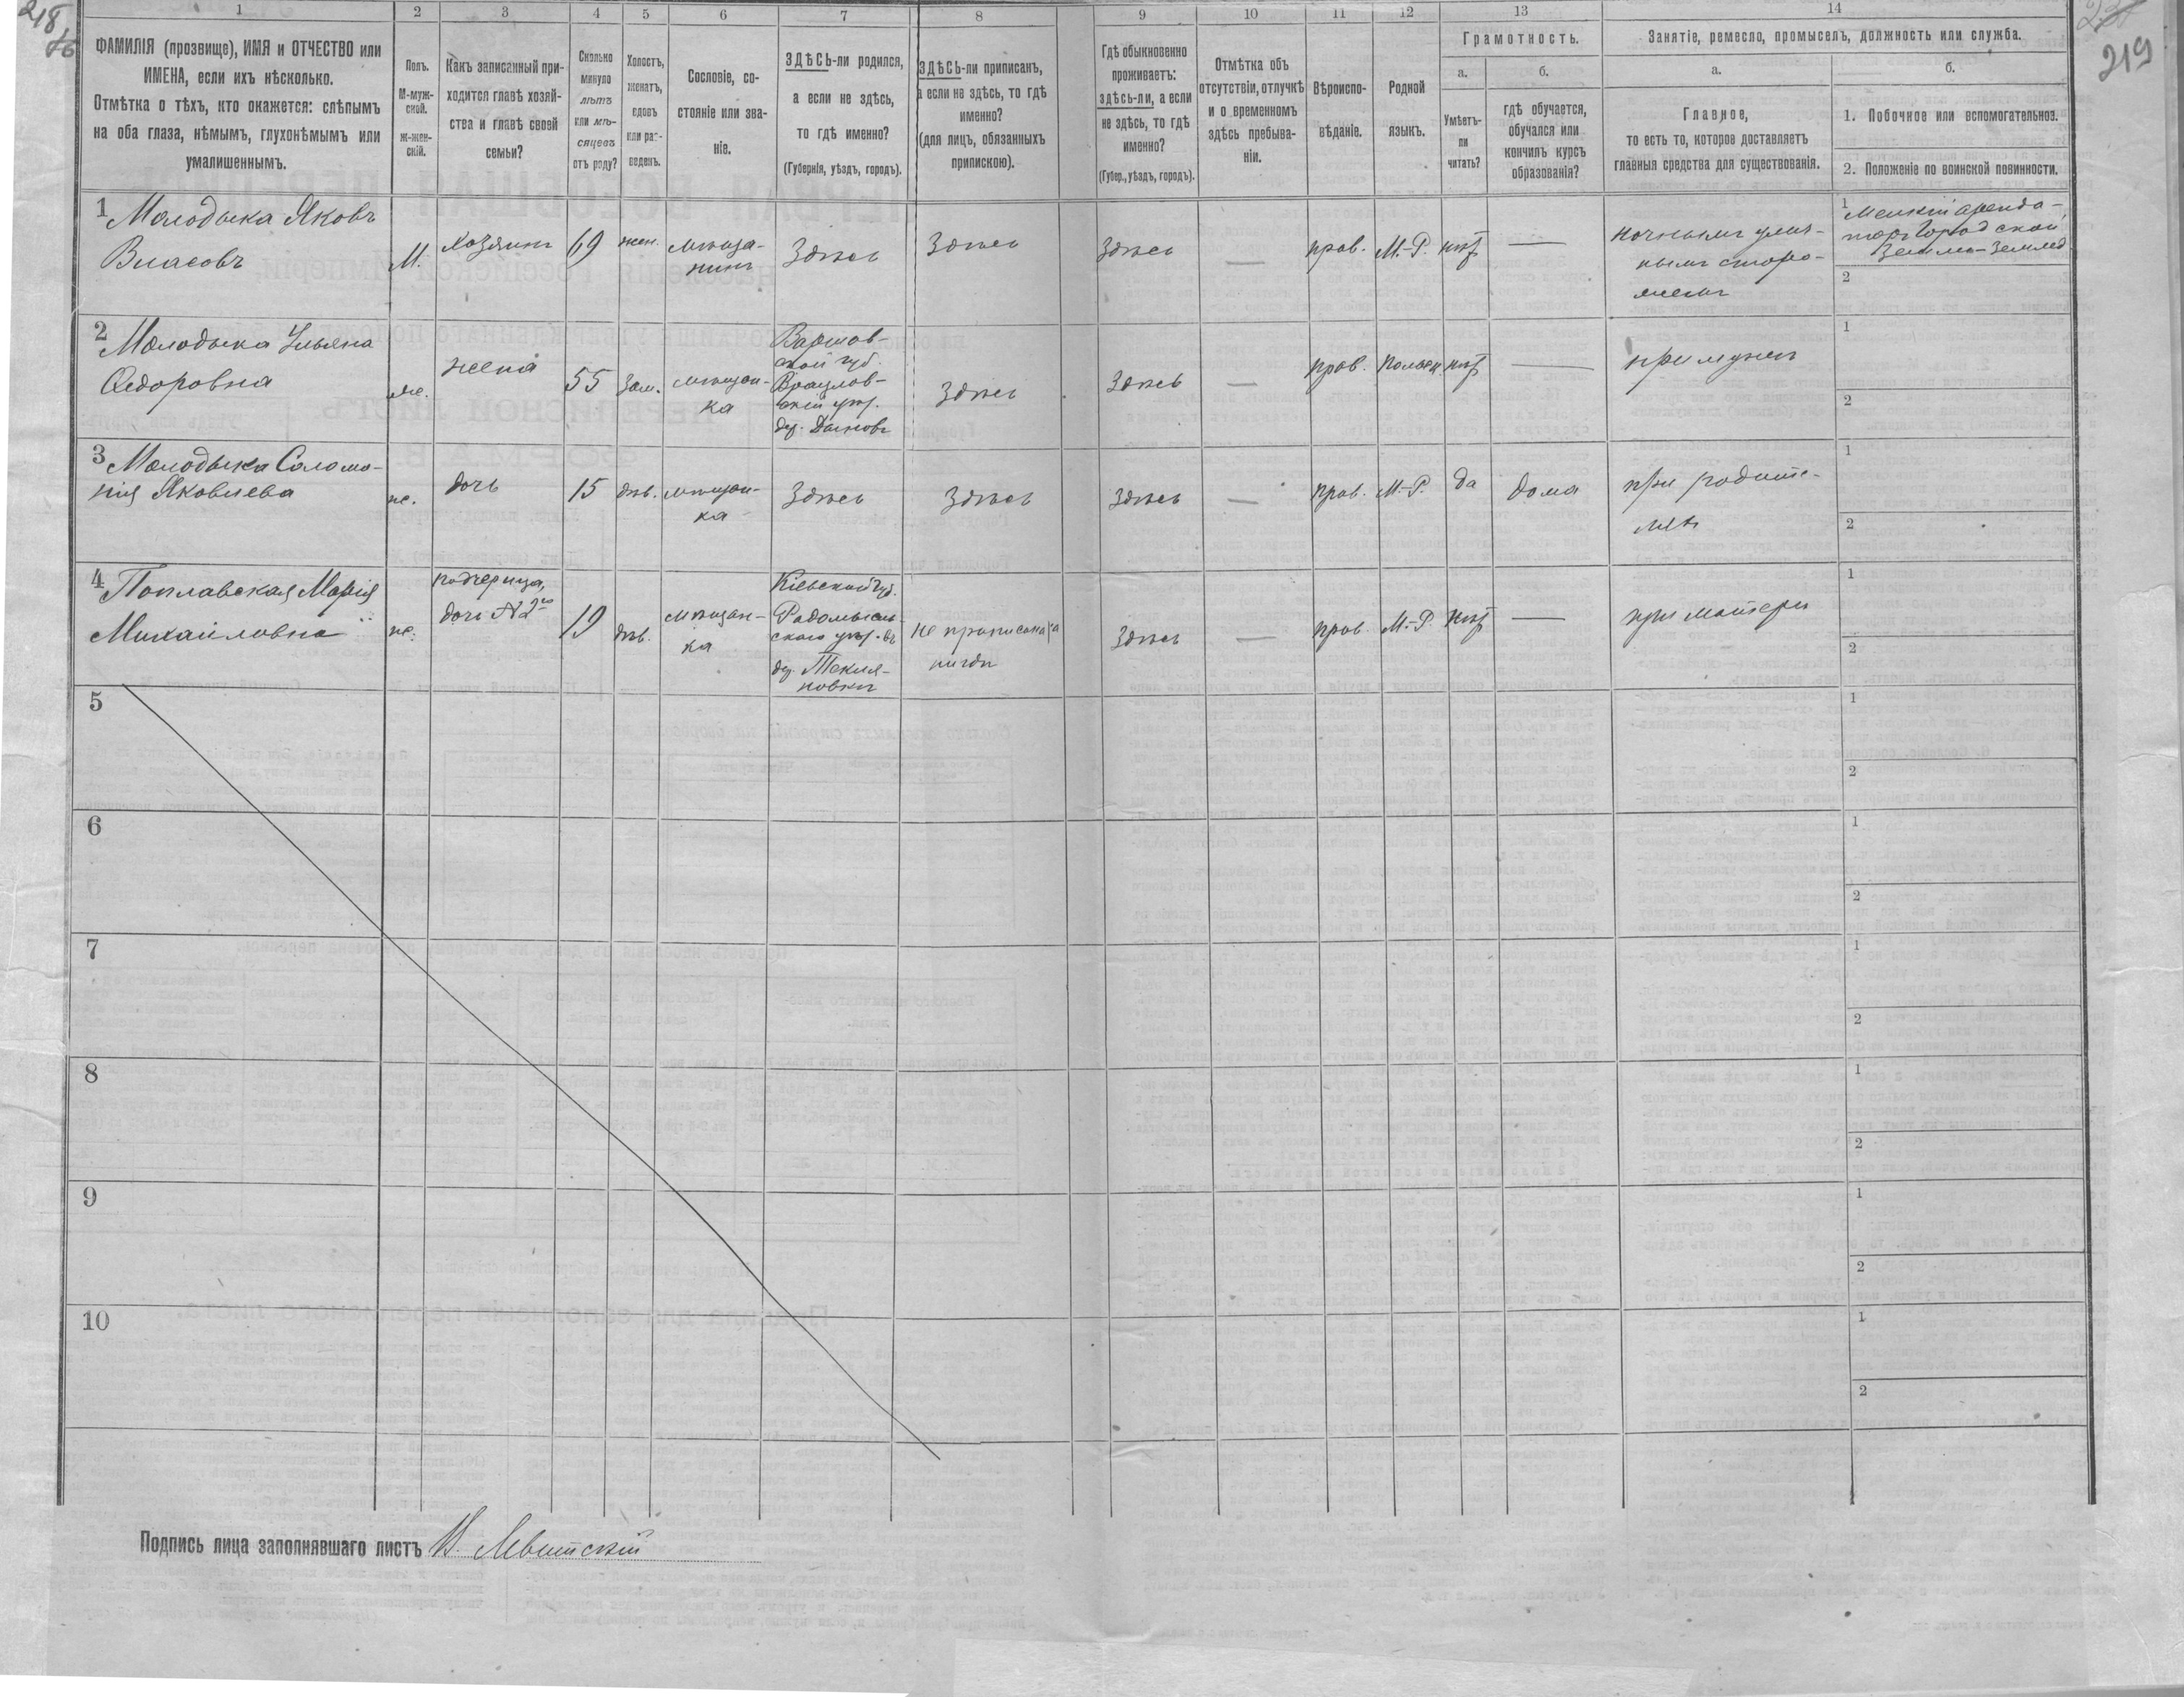 218
об
219
1
2
3
4
5
6
7
8
9
10
11
12
13
14
ФАМИЛІЯ (прозвище), ИМЯ и ОТЧЕСТВО или
ИМЕНА, если ихъ нѣсколько.
Отмѣтка о тѣхъ, кто окажется: слѣпымъ
на оба глаза, нѣмымъ, глухонѣмымъ или
умалишеннымъ.
Полъ.
М-муж-
ской.
ж-жен-
скій.
Какъ записанный при-
ходится главѣ хозяй-
ства и главѣ своей
семьи?
Сколько
минуло
лѣтъ
или мѣ-
сяцевъ
отъ роду?
Холостъ,
женатъ,
вдовъ
или раз-
веденъ.
Сословіе, со-
стояніе или зва-
ніе.
ЗДѢСЬ-ли родился,
а если не здѣсь,
то гдѣ именно?
(Губернія, уѣздъ, городъ).
ЗДѢСЬ-ли приписанъ,
а если не здѣсь, то гдѣ
именно?
(для лицъ, обязанныхъ
припискою).
Гдѣ обыкновенно
проживаетъ:
здѣсь-ли, а если
не здѣсь, то гдѣ
именно?
(Губер., уѣздъ, городъ).
Отмѣтка объ
отсутствіи, отлучкѣ
и о временномъ
здѣсь пребыва-
ніи.
Вѣроиспо-
вѣданіе.
Родной
языкъ.
Грамотность.
а.
Умѣетъ-
ли
читать?
б.
гдѣ обучается,
обучался или
кончилъ курсъ
образованія?
Занятіе, ремесло, промыселъ, должность или служба.
а.
Главное,
то есть то, которое доставляетъ
главныя средства для существованія.
б.
1. Побочное или вспомогательное.
2. Положеніе по воинской повинности.
1 Молодыка Яковъ
Власовъ
М.
хозяинъ
69
жен.
мѣща-
нинъ
Здѣсь
Здѣсь
Здѣсь
—
прав.
М.-Р.
нѣт
—
ночнымъ улич-
нымъ сторо-
жемъ
1 Мелкій аренда-
торъ городской
Земли-землед
2
2 Молодыка Ульяна
Ѳедоровна
же.
жена
55
Зам.
мѣщан-
ка
Варшав-
ской губ.
уѣз.
дер.
Здѣсь
Здѣсь
—
прав.
Польск.
нѣт
—
при мужѣ
1
2
3 Молодыка Соломо-
нія Яковлева
же.
дочь
15
дѣв.
мѣщан-
ка
Здѣсь
Здѣсь
Здѣсь
—
прав.
М.-Р.
да
дома
при родите-
лѣ
1
2
4 Поплавская Марія
Михайловна
же.
подчерица,
дочь №2го
19
дѣв.
мѣщан-
ка
Кіевской губ.
Радомысль-
скаго уѣз. въ
дер. Текля-
новкѣ
не приписана
нигдѣ
Здѣсь
—
прав.
М.-Р.
нѣт
—
при матери
1
2
5
1
2
6
1
2
7
1
2
8
1
2
9
1
2
10
1
2
Подпись лица заполнявшаго листъ Н. Левитскій